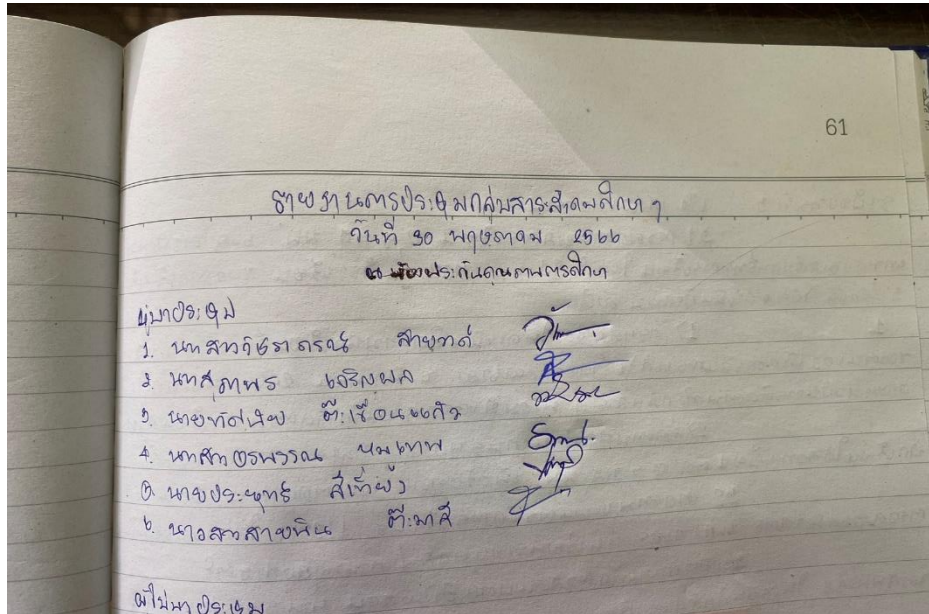 61
รายงานการประชุมกลุ่มสาระสังคมศึกษา ฯ
วันที่ 30 พฤษภาคม 2566
ณ ห้องประกันคุณภาพการศึกษา
ผู้มาประชุม
1. นางสาววิชราภรณ์
2. นางสุภาพร เจริญผล
3. นายทัศนัย ต๊ะเขื่อนแก้ว
4. นางสาวอรพรรณ หมเทพ
5. นายประยุทธ์ สีเที่ยง
6. นางสาวสายพิน ต๊ะมาสี
ผู้ไม่มาประชุม